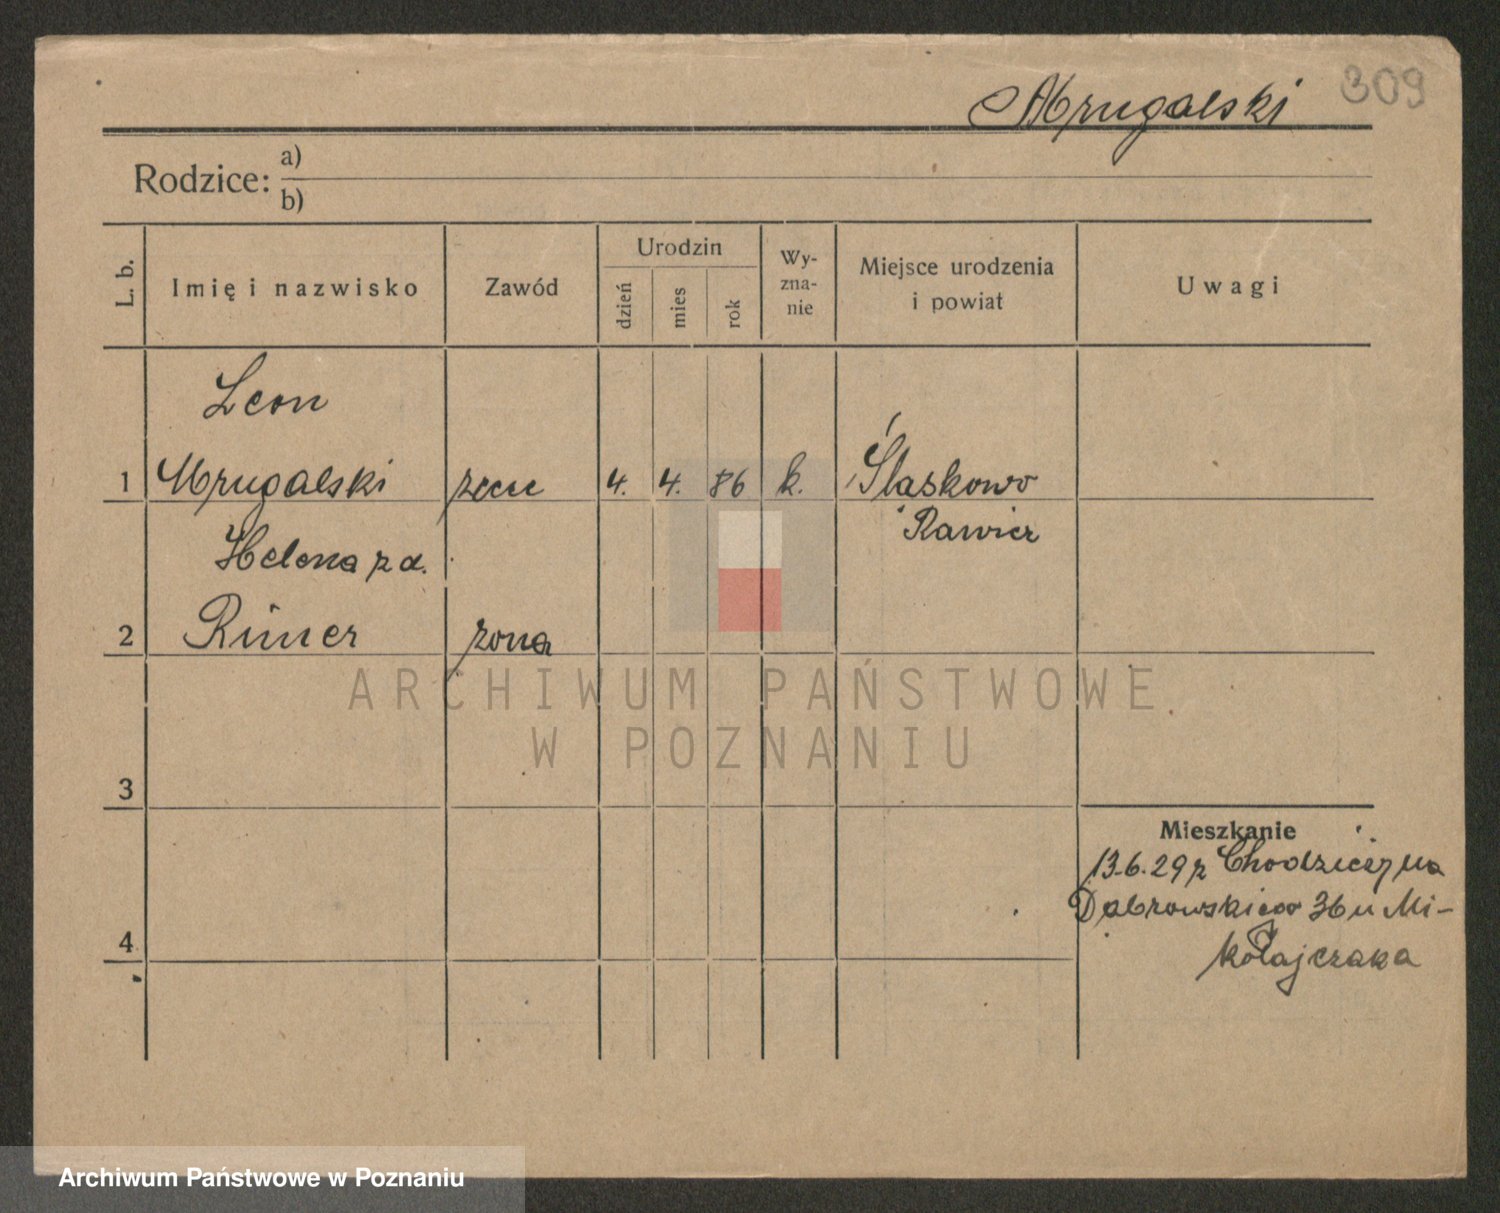 309
Mrugalski
Rodzice:
a)
b)
L. b.
Imię i nazwisko
Zawód
Urodzin
dzień
mies
rok
Wy-
zna-
nie
Miejsce urodzenia
i powiat
Uwagi
Leon
1 Mrugalski 4. 4. 86 k. Ślaskowo
Rawicz
Helena z d.
2 Rimer żona
3
4
Mieszkanie
13.6.29 z Chodzieży na
Dąbrowskiego 36 u Mi-
kołajczaka
ARCHIWUM PAŃSTWOWE
W POZNANIU
Archiwum Państwowe w Poznaniu